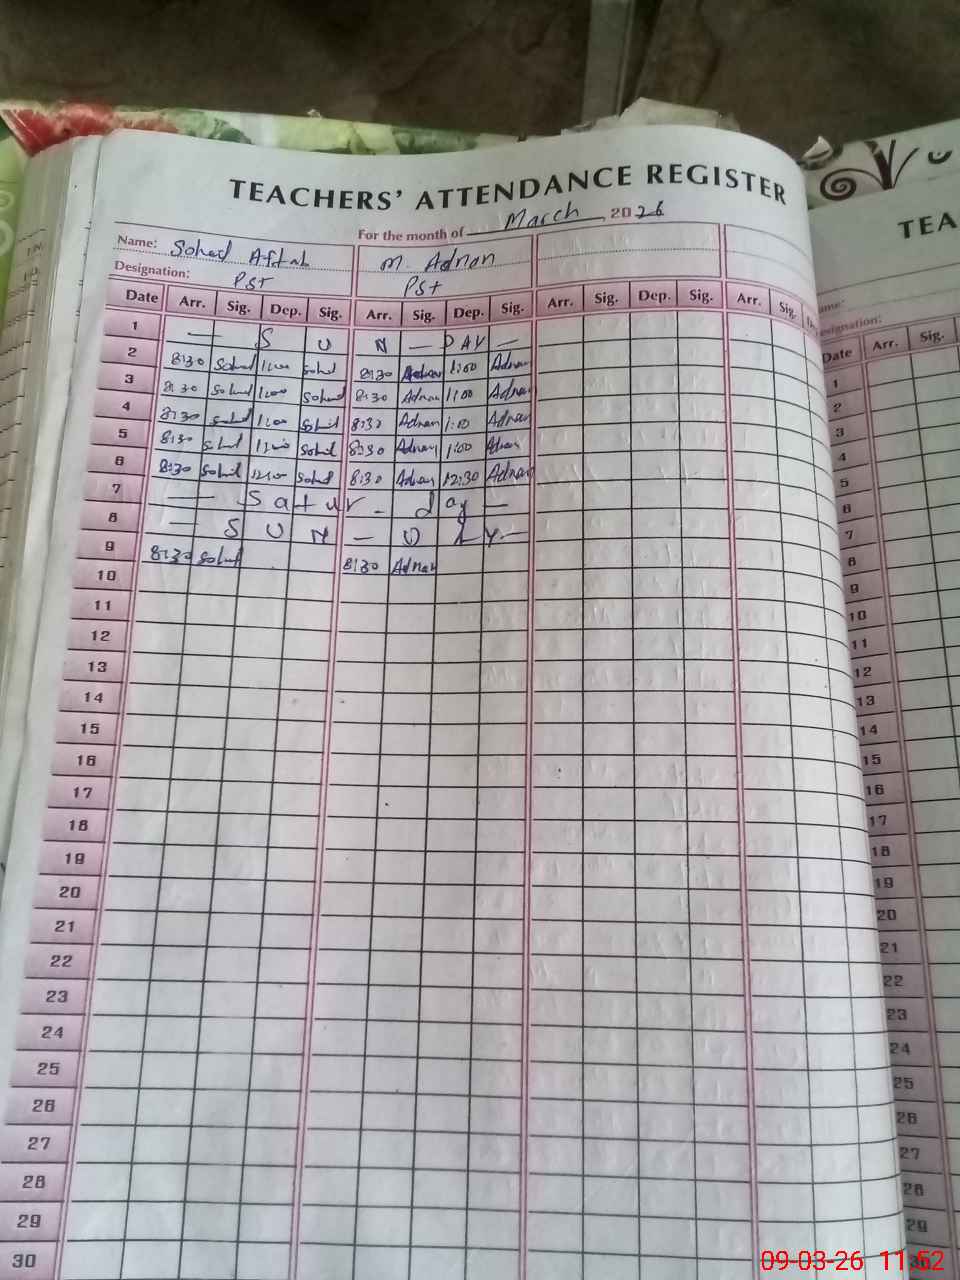 TEACHERS' ATTENDANCE REGISTER
For the month of March, 2026
Name: Sohed Aftab M. Adnan
Designation: PST PST
Date Arr. Sig. Dep. Sig. Arr. Sig. Dep. Sig. Arr. Sig. Dep. Sig. Arr. Sig.
1 — S U N — DAY —
2 8:30 Sohed 1:00 Sohed 8:30 Adnan 1:00 Adnan
3 8:30 Sohed 1:00 Sohed 8:30 Adnan 1:00 Adnan
4 8:30 Sohed 1:00 Sohil 8:30 Adnan 1:00 Adnan
5 8:30 Sohed 1:00 Sohil 8:30 Adnan 1:00 Adnan
6 8:30 Sohil 12:00 Sohed 8:30 Adnan 12:30 Adnan
7 — Satur - day —
8 — S U N — D A Y —
9 8:30 Sohed 8:30 Adnan
10
11
12
13
14
15
16
17
18
19
20
21
22
23
24
25
26
27
28
29
30
TEA
Designation:
Date Arr. Sig.
1
2
3
4
5
6
7
8
9
10
11
12
13
14
15
16
17
18
19
20
21
22
23
24
25
26
27
28
29
09-03-26 11:52